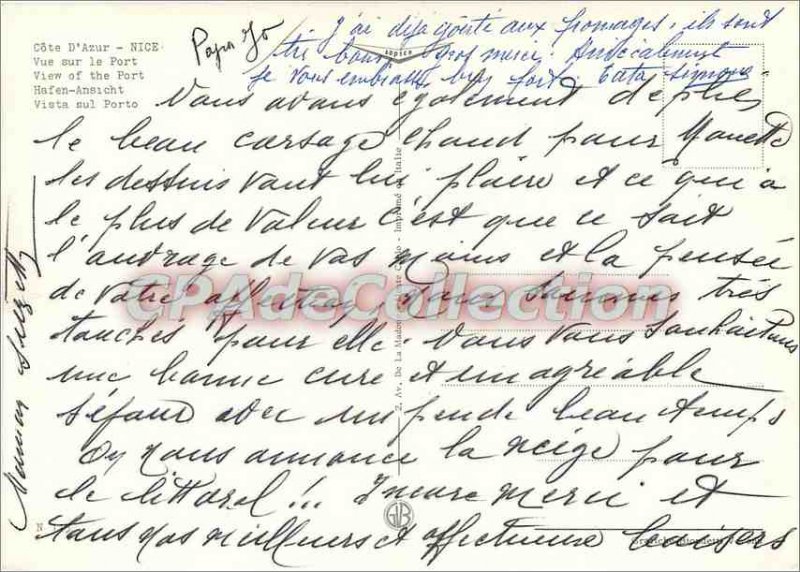 Côte D'Azur - NICE
Vue sur le Port
View of the Port
Hafen-Ansicht
Vista sul Porto
Papa Jo
j'ai déjà goûté aux fromages, ils sont
très bons. Gros merci. Amicalement
Je vous embrasse bien fort. Tata Simone
Nous avons également déplié
le beau corsage chaud pour Manette
les dessins vont lui plaire et ce qui a
le plus de valeur c'est que ce soit
l'ouvrage de vos mains et la pensée
de votre affection, nous sommes très
touchés pour elle. Nous vous souhaitons
une bonne cure et un agréable
séjour avec un peu de beau temps
On nous annonce la neige pour
le littoral!! Encore merci et
tous nos meilleurs et affectueux baisers
Maman Suzette
CPADeCollection
2, Av. De La Madone - Monte Carlo - Imprimé en Italie
GB
N